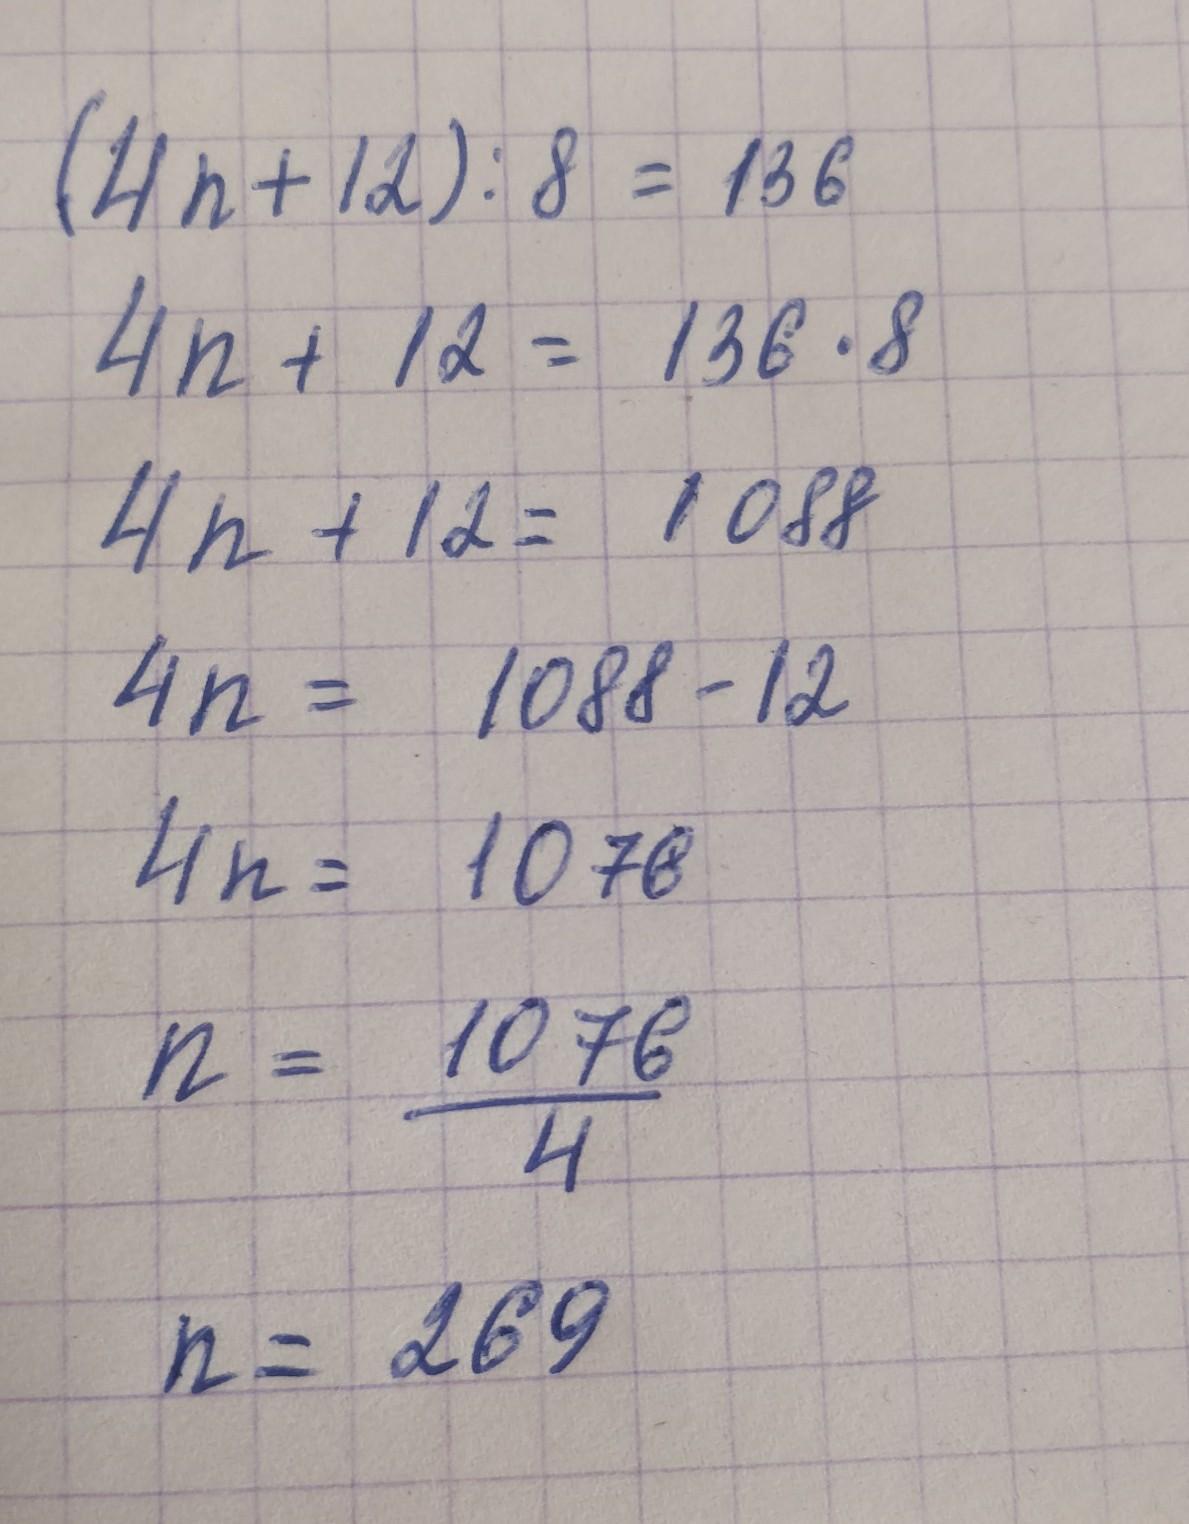 (4n+12):8 = 136
4n + 12 = 136·8
4n + 12 = 1088
4n = 1088-12
4n = 1076
n = 1076/4
n = 269